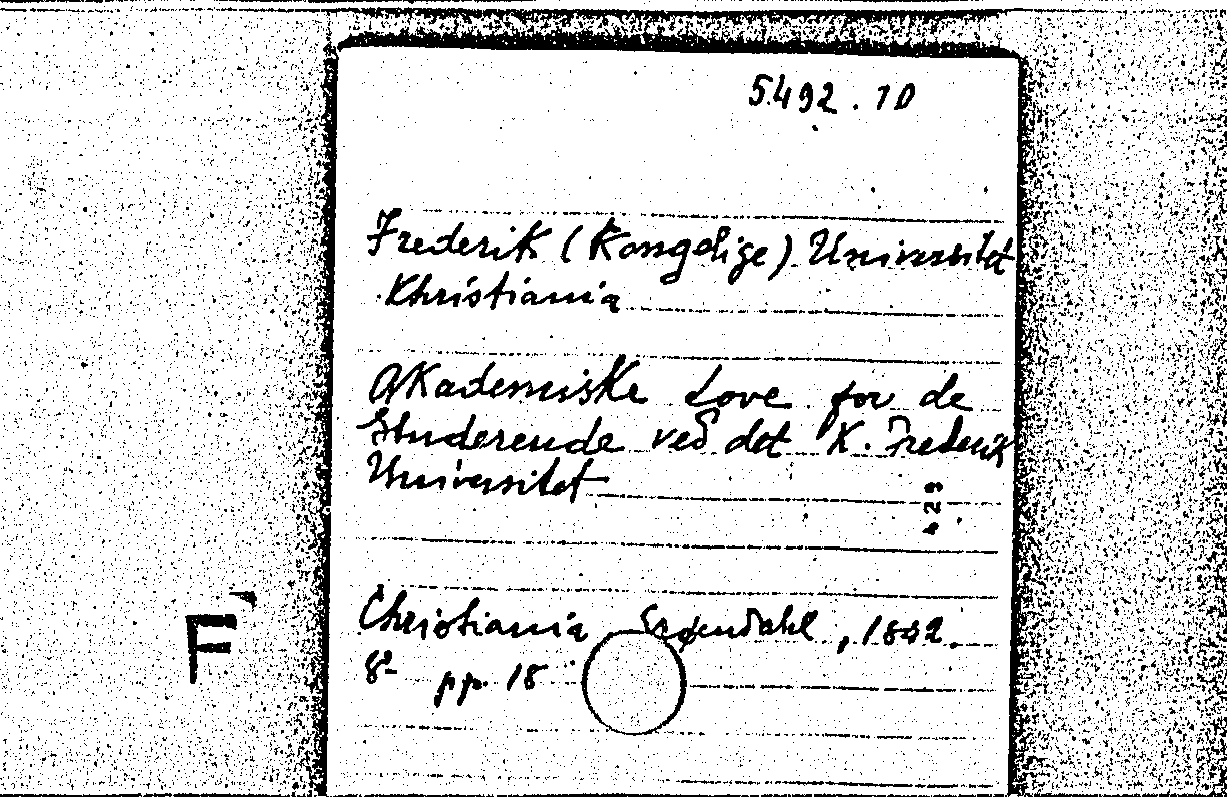 5492.10
Frederik (Kongelige) Universitet
Khristiania
Akademiske Love for de
Studerende ved det K. Frederik
Universitet
423
Christiania, , 1842.
8º pp. 18
F